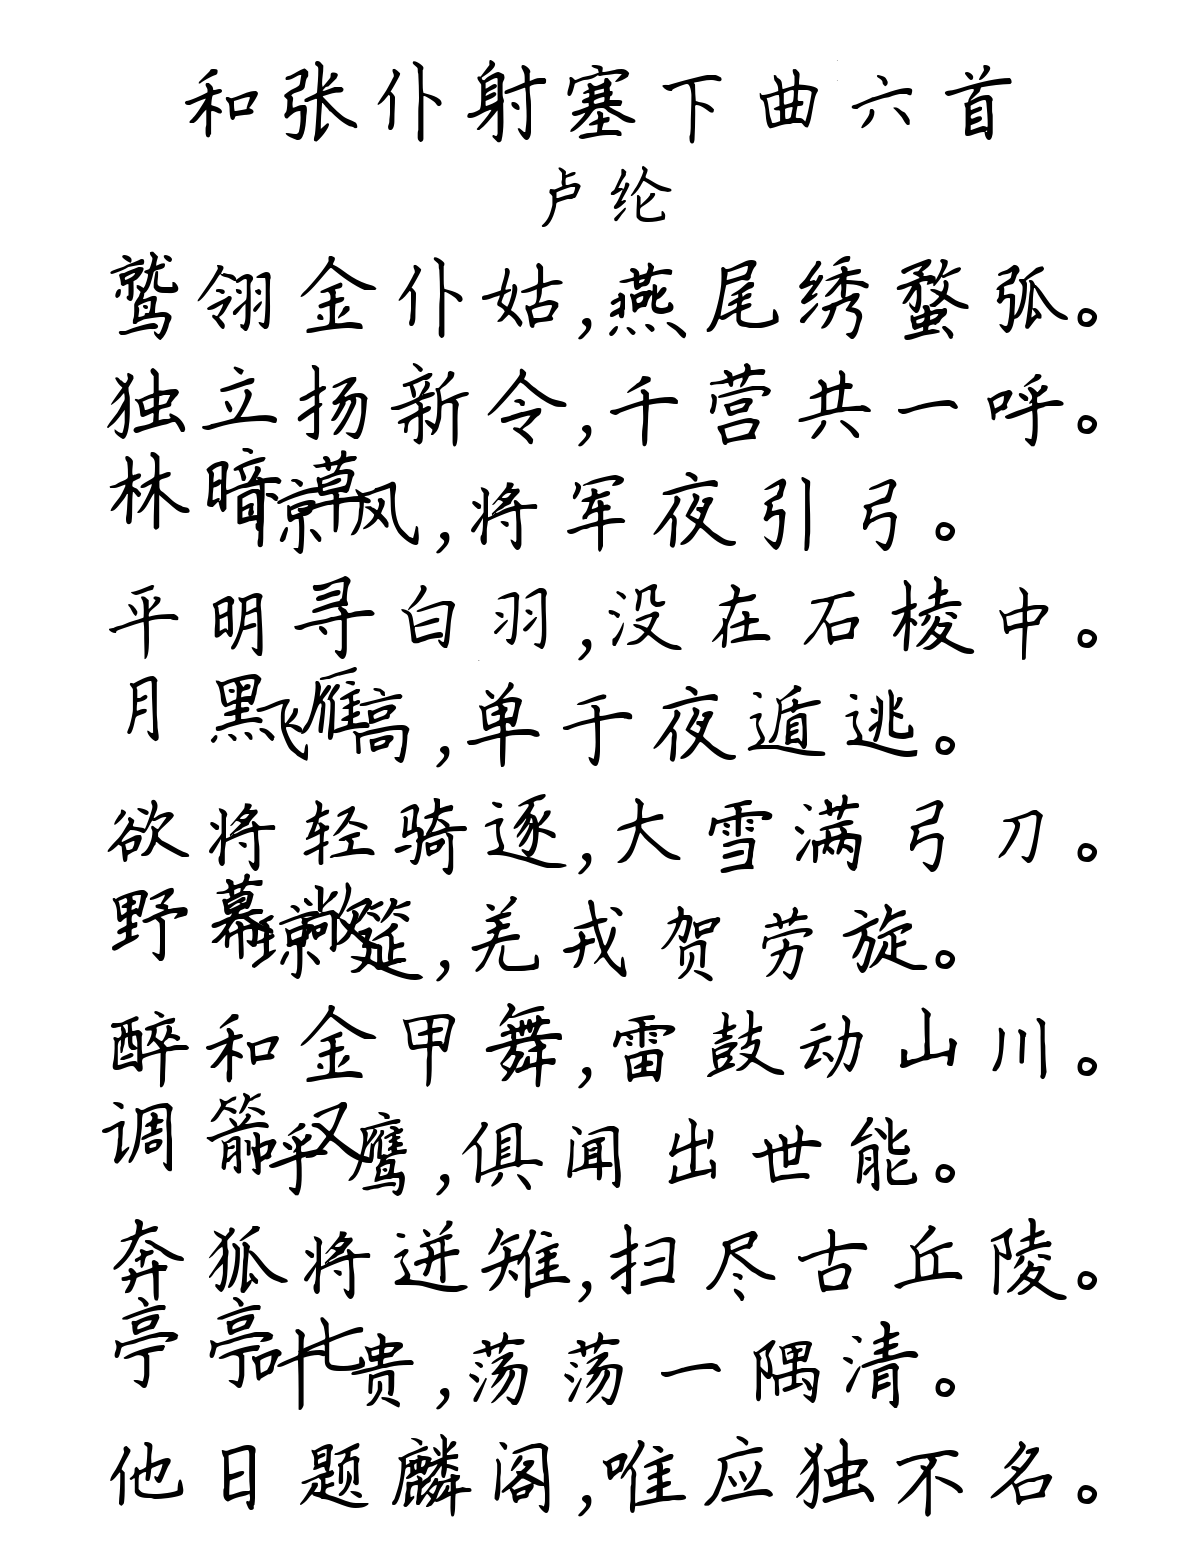 和张仆射塞下曲六首
卢纶
鹫翎金仆姑,燕尾绣蝥弧。
独立扬新令,千营共一呼。
林暗草惊风,将军夜引弓。
平明寻白羽,没在石棱中。
月黑雁飞高,单于夜遁逃。
欲将轻骑逐,大雪满弓刀。
野幕敞琼筵,羌戎贺劳旋。
醉和金甲舞,雷鼓动山川。
调箭又呼鹰,俱闻出世能。
奔狐将迸雉,扫尽古丘陵。
亭亭七叶贵,荡荡一隅清。
他日题麟阁,唯应独不名。